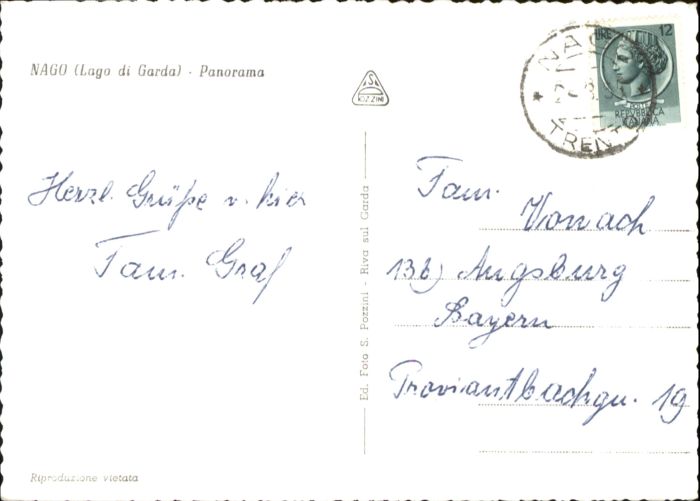 NAGO (Lago di Garda) - Panorama
S.
POZZINI
LIRE 12
POSTE
REPVBBLICA
ITALIANA
NAGO
TRENTO
Herzl. Grüße v. hier
Fam. Graf
Ed. Foto S. Pozzini - Riva sul Garda
Fam.
Vonach
13b) Augsburg
Bayern
Proviantbachgu. 19
Riproduzione vietata